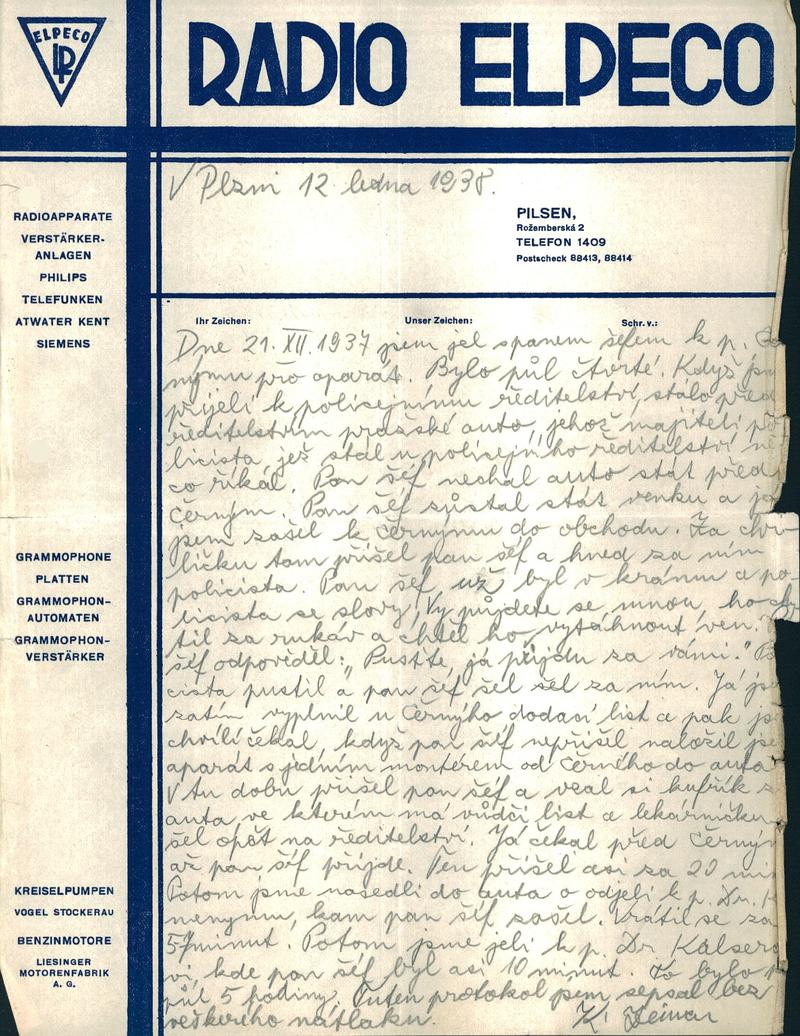 ELPECO
LP
RADIO ELPECO
V Plzni 12 ledna 1938.
PILSEN,
Rožemberská 2
TELEFON 1409
Postscheck 88413, 88414
RADIOAPPARATE
VERSTÄRKER-
ANLAGEN
PHILIPS
TELEFUNKEN
ATWATER KENT
SIEMENS
GRAMMOPHONE
PLATTEN
GRAMMOPHON-
AUTOMATEN
GRAMMOPHON-
VERSTÄRKER
KREISELPUMPEN
VOGEL STOCKERAU
BENZINMOTORE
LIESINGER
MOTORENFABRIK
A. G.
Ihr Zeichen: Unser Zeichen: Schr. v.:
Dne 21. XII. 1937 jsem jel spanem šéfem k p.
nýmu pro aparát. Bylo půl čtvrté. Když
přijeli k policejnímu ředitelství, stálo před
ředitelstvím pražské auto, jehož majiteli
licista jež stál u policejního ředitelství
co říkal. Pan šéf nechal auto stát před
Černým. Pan šéf zůstal stát venku a
jsem zašel k černýmu do obchodu. Za chvi-
ličku tam přišel pan šéf a hned za ním
policista. Pan šéf už byl v krámu a po-
licista se slovy, Vy půjdete se mnou, ho chy
til za rukáv a chtěl ho vytáhnout ven.
šéf odpověděl: „Pusťte, já přijdu za vámi."
cista pustil a pan šéf šel šel za ním. Já
zatím vyplnil u Černýho dodací list a pak
chvíli čekal, když pan šéf nepřišel naložil
aparát s jedním montérem od Černého do auta
V tu dobu přišel pan šéf a vzal si kufřík
auta ve kterém má vůdčí list a lekárničku
šel opět na ředitelství. Já čekal před
až pan šéf přijde. Ten přišel asi za 20
Potom jsme nasedli do auta a odjeli k p. Dr.
nenymu, kam pan šéf zašel. Vrátil se za
minut. Potom jsme jeli k p. Dr.
vi, kde pan šéf byl asi 10 minut. To bylo
půl 5 hodiny. Tuten protokol jsem sepsal bez
veškerého nátlaku. K.